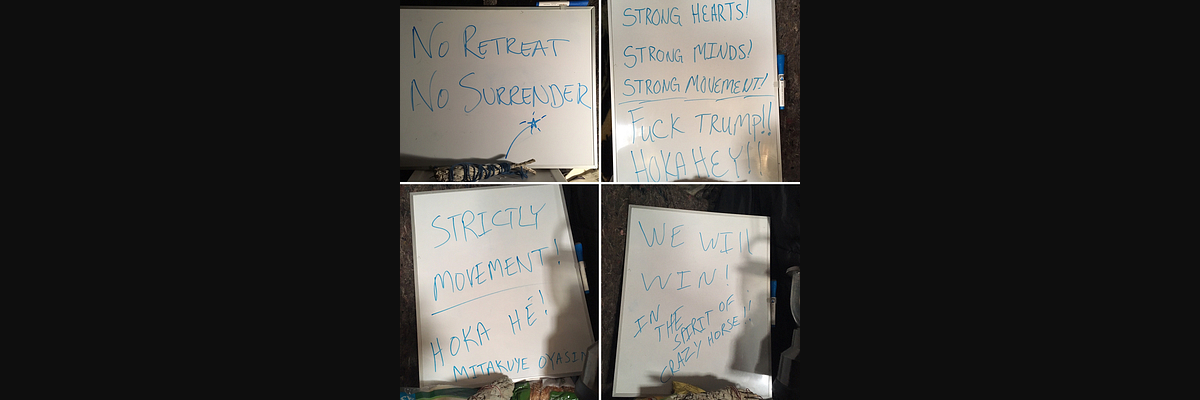 No RETREAT
No SURRENDER
STRONG HEARTS!
STRONG MINDS!
STRONG MOVEMENT!
FUCK TRUMP!!
HOKA HEY!!
STRICTLY
MOVEMENT!
HOKA HÉ!
MITAKUYE OYASIN
WE WIll
WIN!
IN THE
SPIRIT OF
CRAZY HORSE!!